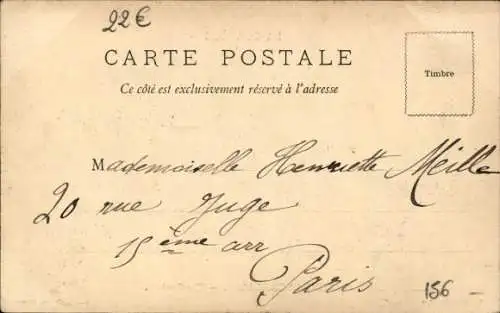 22€
CARTE POSTALE
Ce côté est exclusivement réservé à l'adresse
Timbre
Mademoiselle Henriette Meille
20 rue Juge
15ème arr
Paris
156